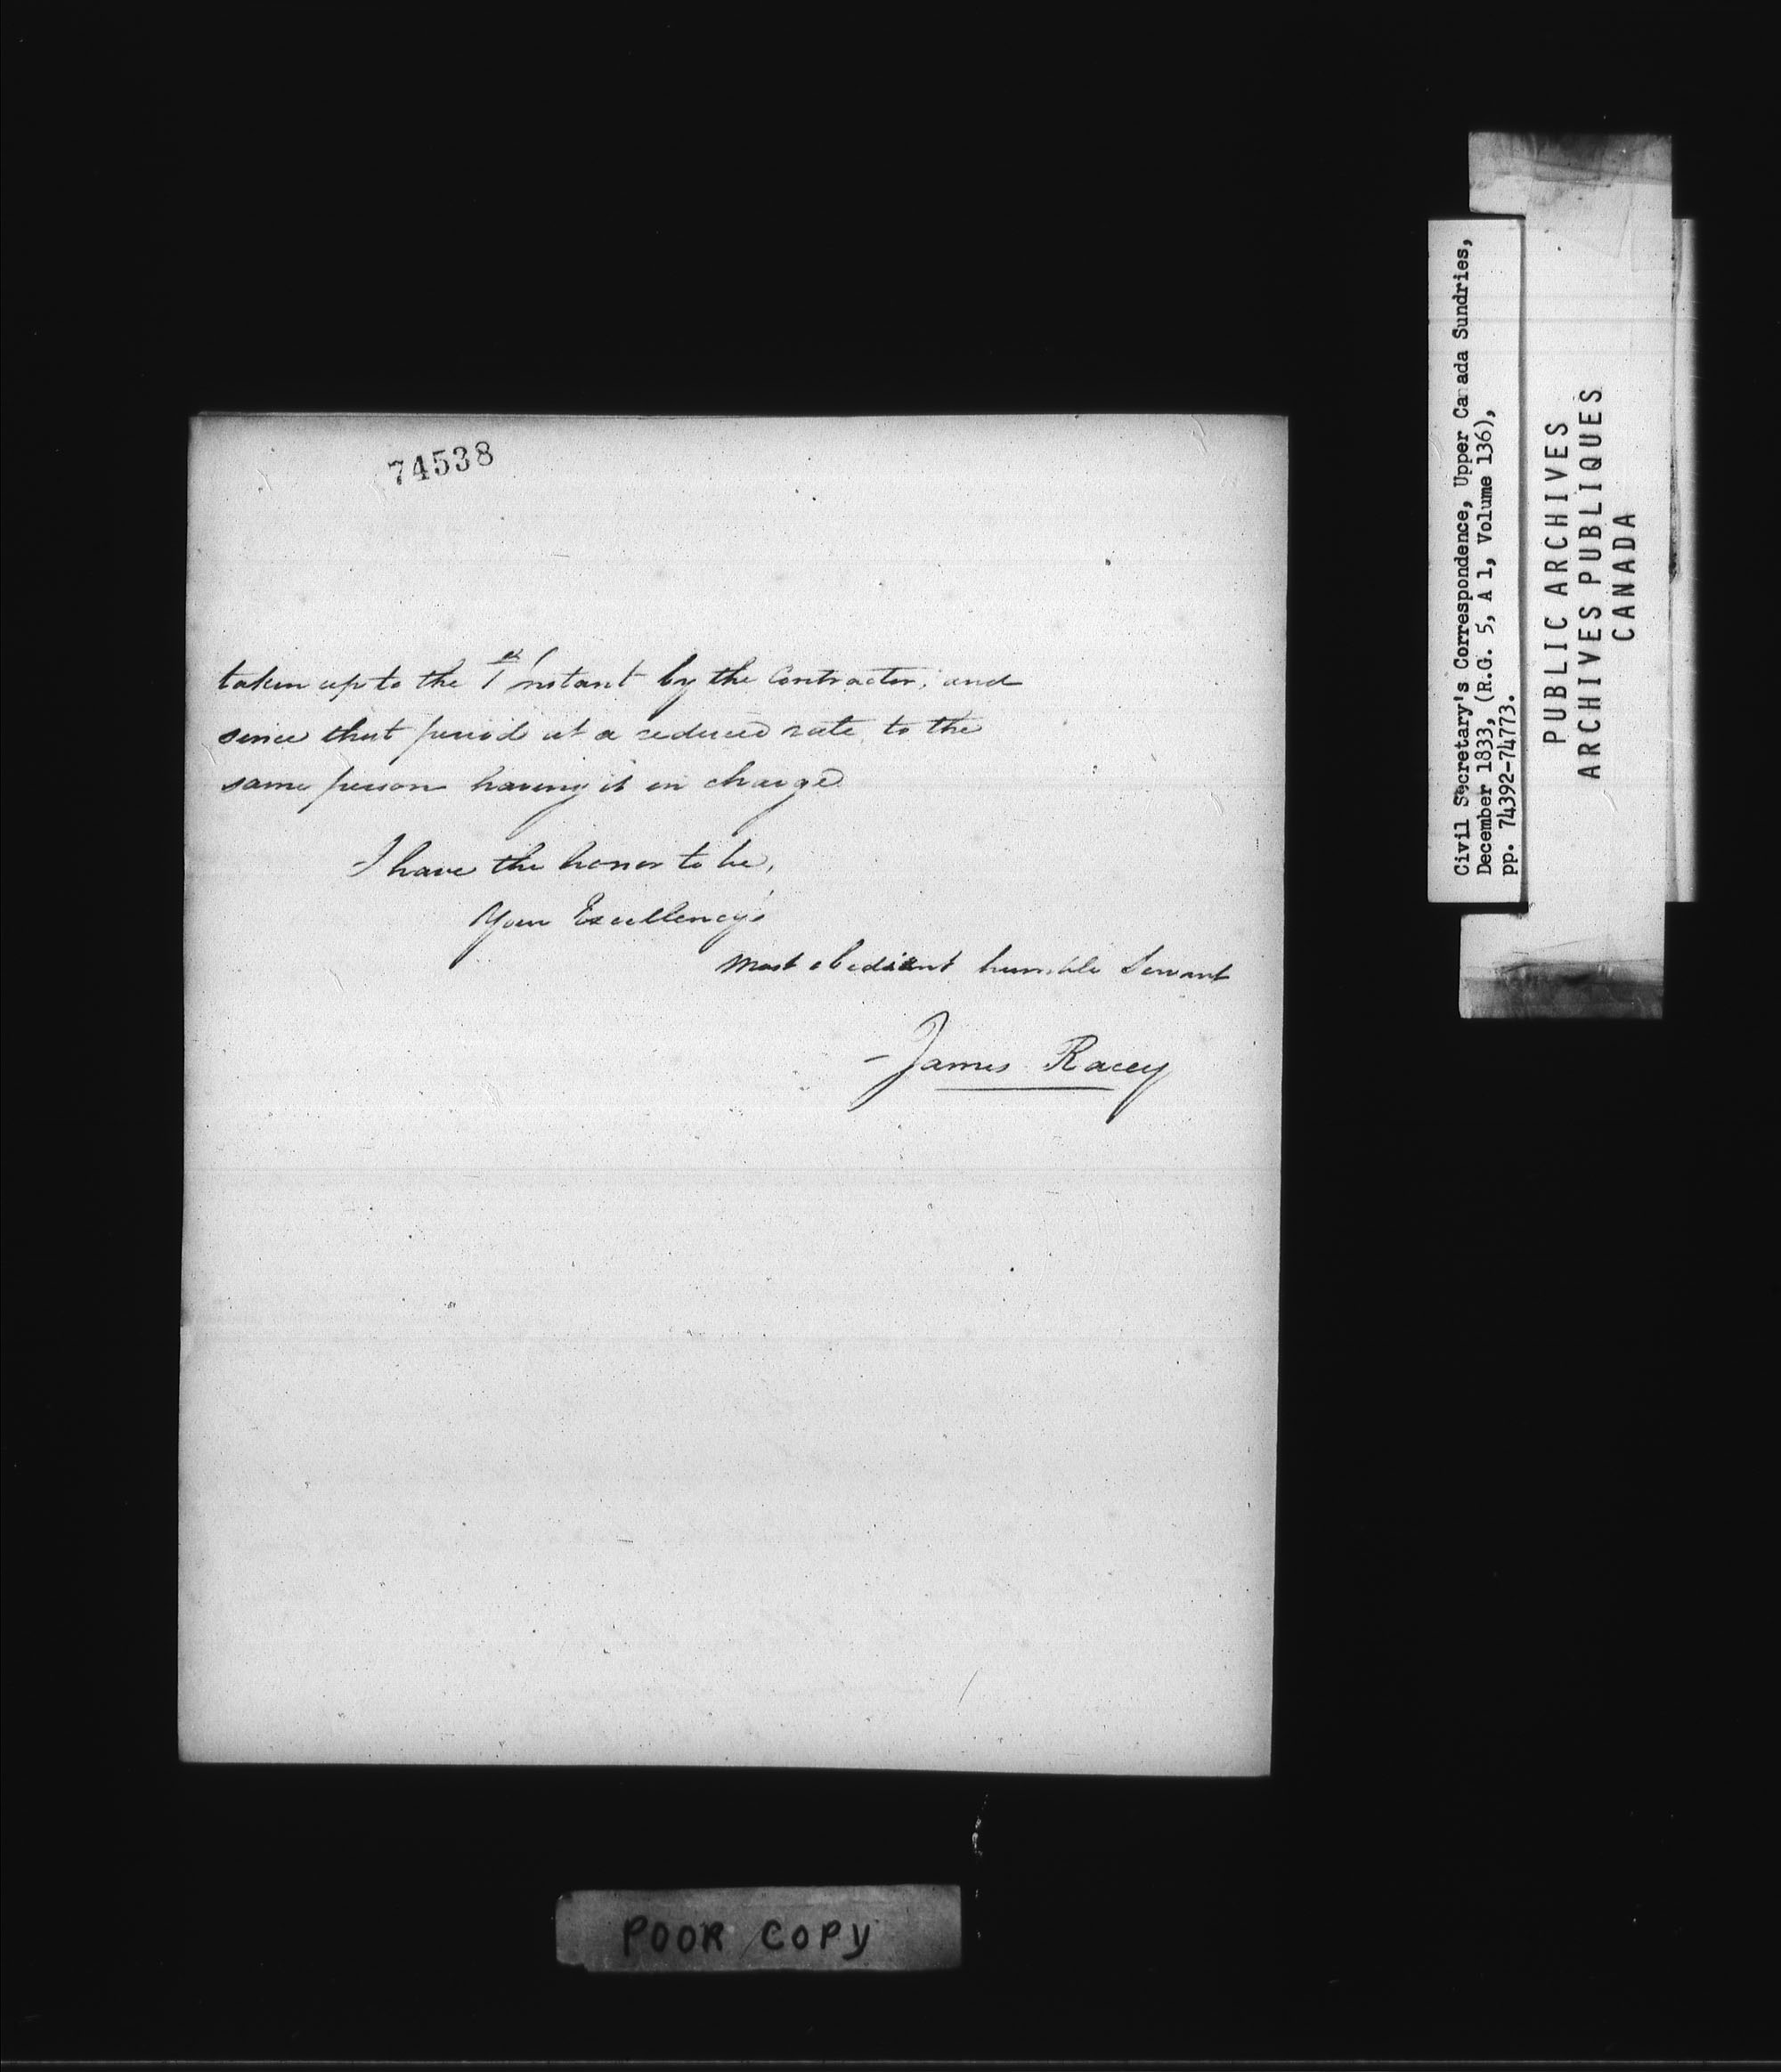 74538
taken up to the 1st Instant by the Contractor, and
since that period at a reduced rate, to the
same person having it in charge
I have the honor to be,
Your Excellency's
Most obedient humble Servant
James Racey
Civil Secretary's Correspondence, Upper Canada Sundries,
December 1833, (R.G. 5, A 1, Volume 136),
pp. 74392-74773.
PUBLIC ARCHIVES
ARCHIVES PUBLIQUES
CANADA
POOR COPY